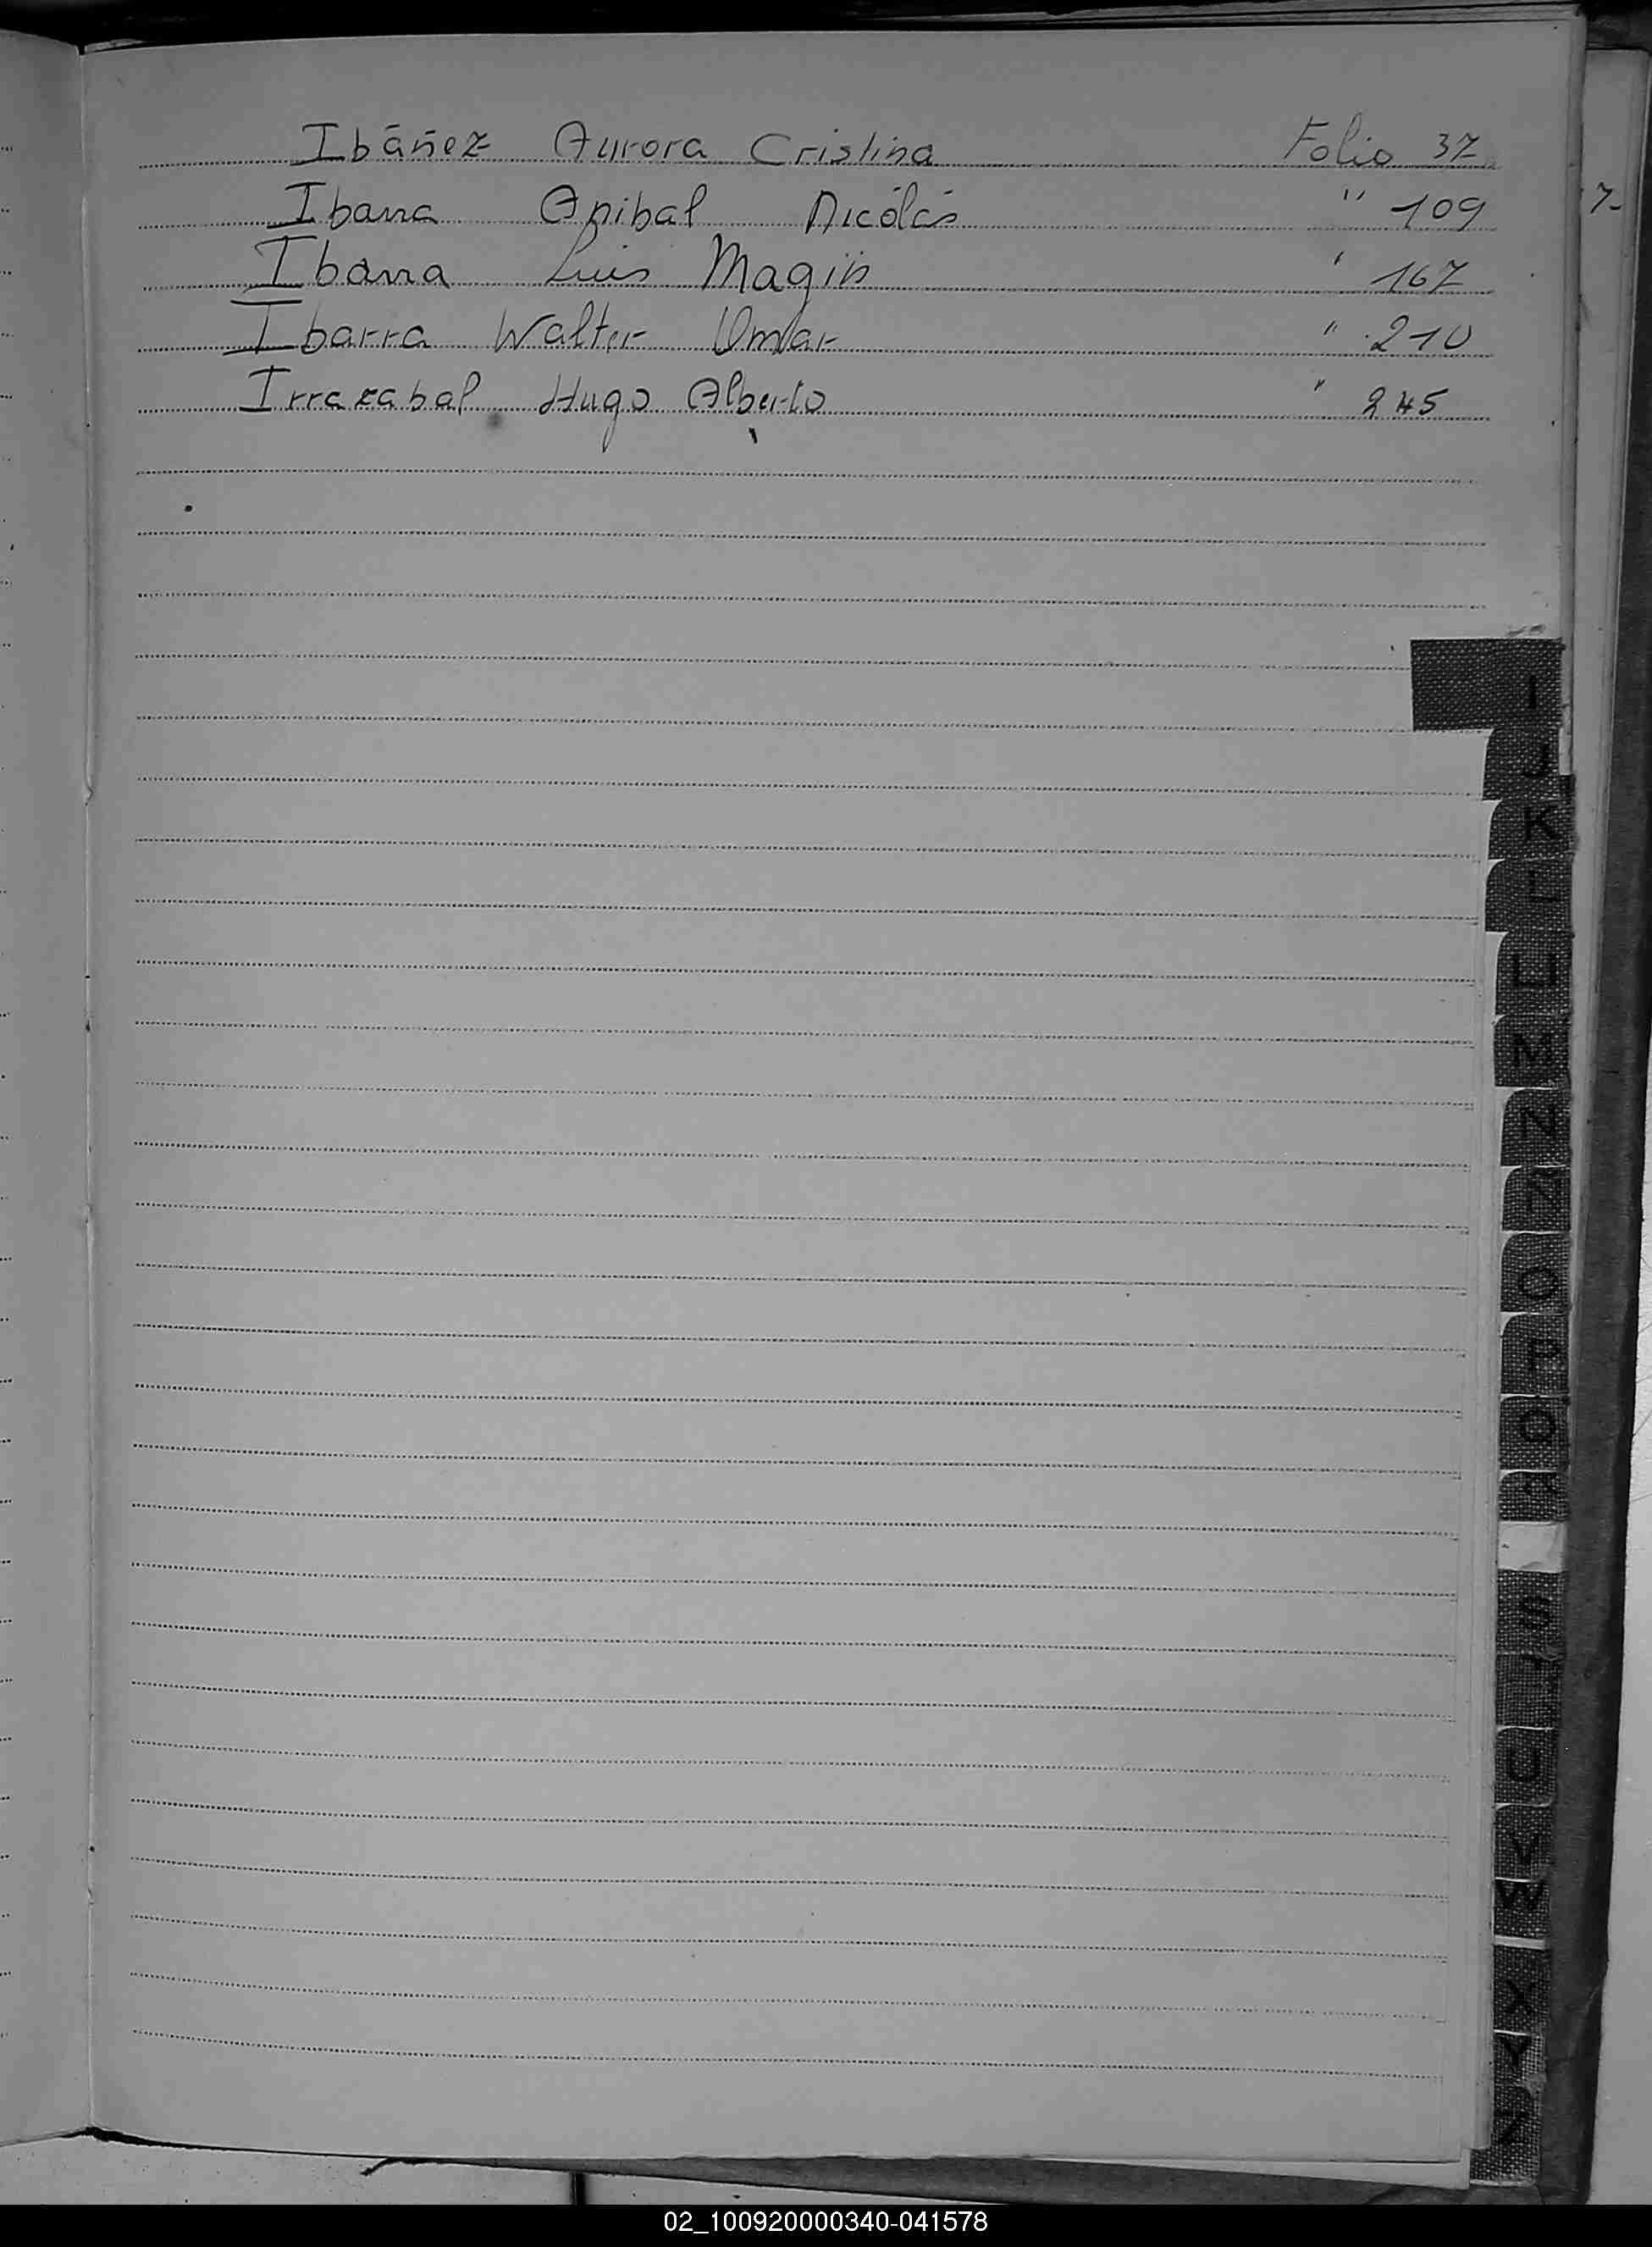 Ibáñez Aurora Cristina Folio 37
Ibarra Anibal Nicolás " 109
Ibarra Luis Magín " 167
Ibarra Walter Omar " 210
Irrazabal Hugo Alberto " 245
7-
I
J
K
L
LL
M
N
Ñ
O
P
Q
S
U
V
W
X
Y
Z
02_100920000340-041578